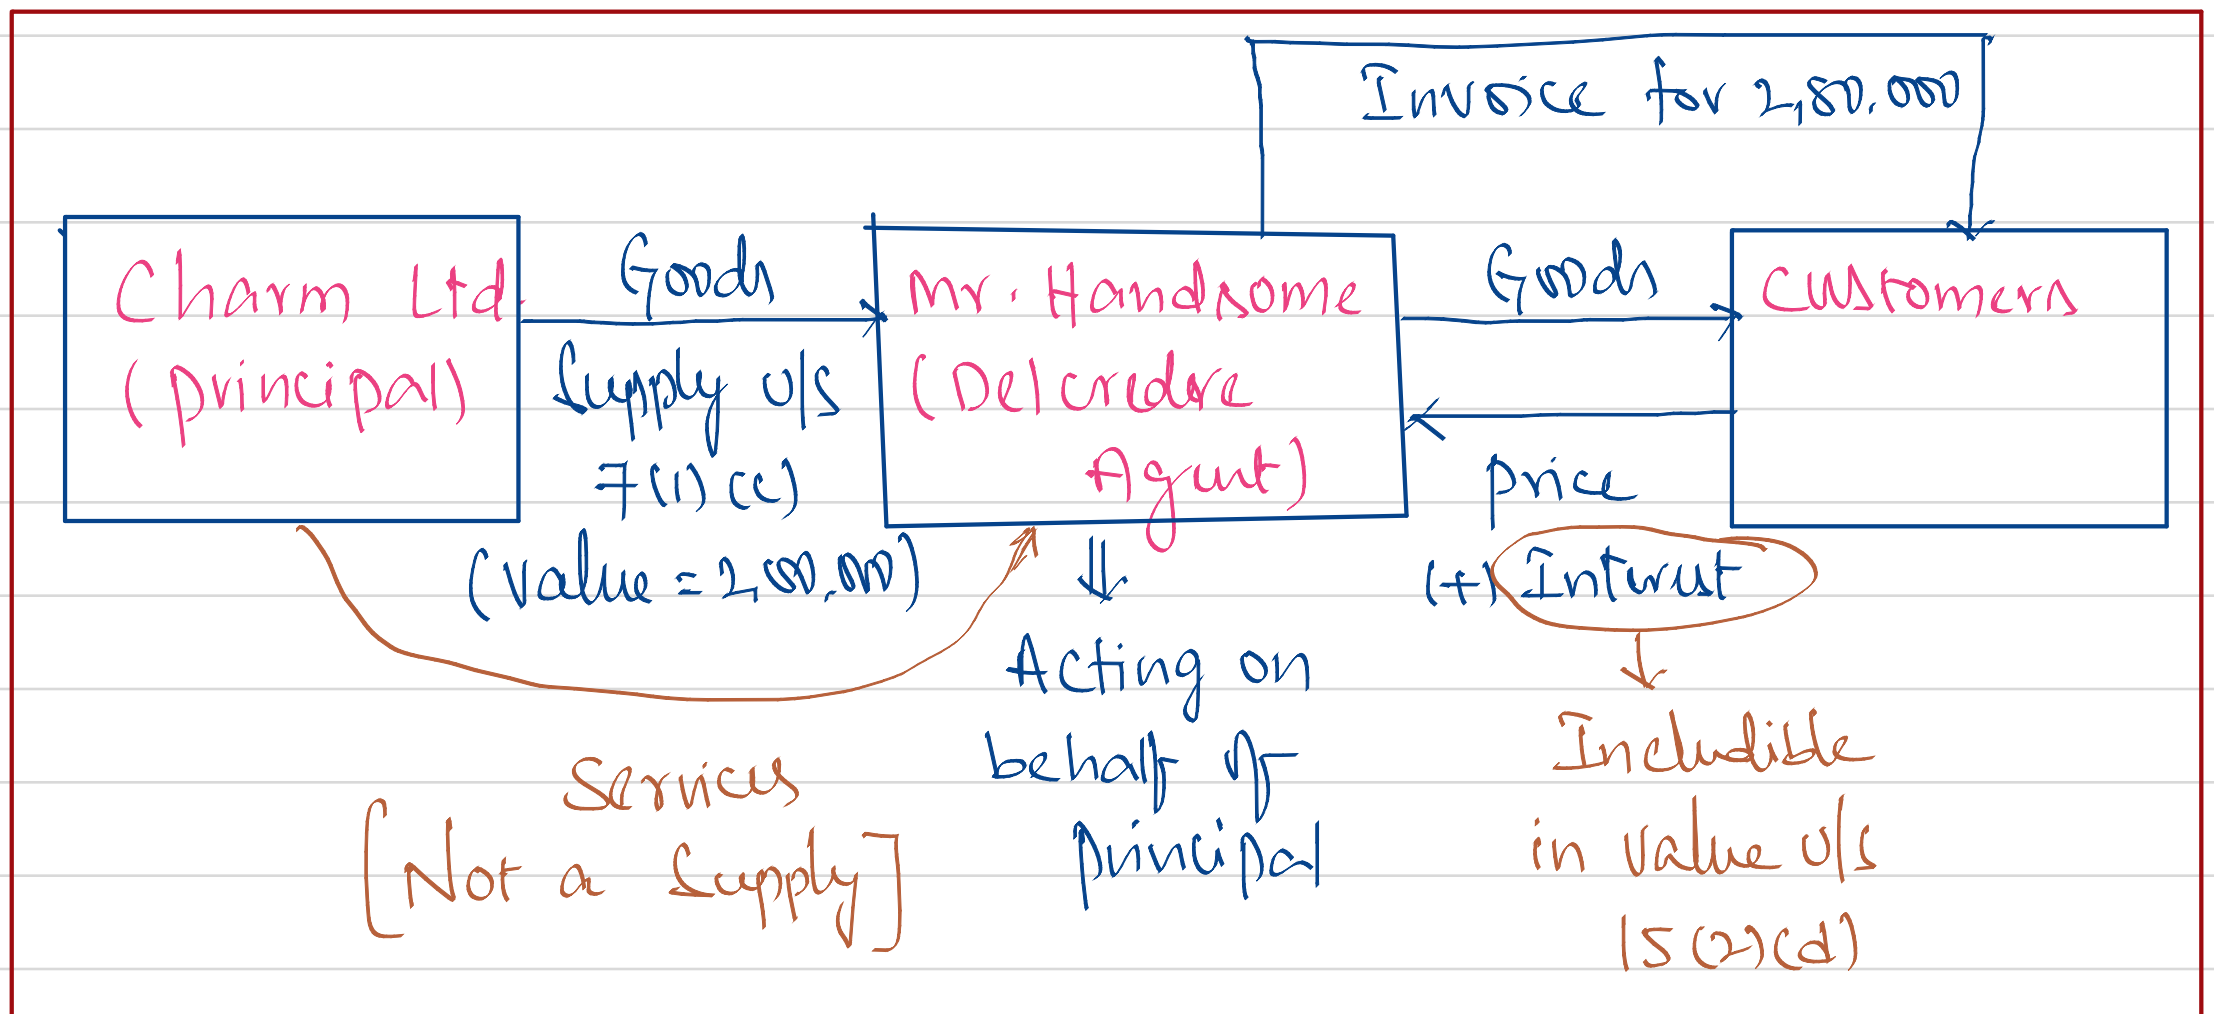 Invoice for 2,80,000
Charm Ltd.
(principal)
Goods
Supply u/s
7(1)(c)
(Value = 2,80,000)
Mr. Handsome
(Delcredere
Agent)
Goods
price
(+) Interest
Customers
Acting on
behalf of
principal
Services
[Not a Supply]
Includible
in value u/s
15(2)(d)